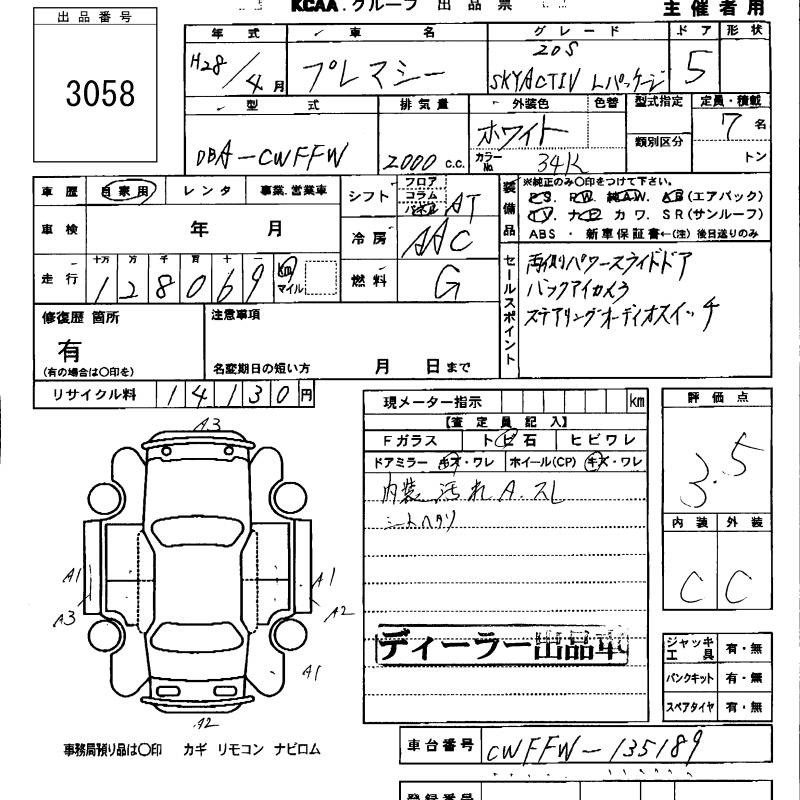 KCAA.グループ 出品票
主催者用
出品番号
3058
年式 車名 グレード ドア 形状
H28/4月 プレマシー 20S SKYACTIV Lパッケージ 5
型式 排気量 外装色 色替 型式指定 定員・積載
DBA-CWFFW 2000 c.c. ホワイト 類別区分 7名
カラーNo. 34K トン
車歴 自家用 レンタ 事業.営業車
シフト フロア コラム AT
装備品 ※純正のみ〇印をつけて下さい。
P.S. P.W 純A.W. A.B(エアバック)
T.V. ナビ カワ. SR(サンルーフ)
ABS ・ 新車保証書←(注) 後日送りのみ
車検 年 月
冷房 AAC
走行 十万 万 千 百 十 一
128069 Km マイル
燃料 G
セールスポイント
両側パワースライドドア
バックアイカメラ
ステアリングオーディオスイッチ
修復歴 箇所
有
(有の場合は〇印を)
注意事項
名変期日の短い方 月 日まで
リサイクル料 14,130円
現メーター指示 km
【査定員記入】
Fガラス トビ石 ヒビワレ
ドアミラー キズ・ワレ ホイール(CP) キズ・ワレ
内装 汚れ A.スレ
シートヘタリ
評価点
3.5
内装 外装
C C
A3
A1
A3
A1
A2
A1
A2
ディーラー出品車
ジャッキ工具 有・無
パンクキット 有・無
スペアタイヤ 有・無
事務局預り品は〇印 カギ リモコン ナビロム
車台番号 CWFFW-135189
登録番号